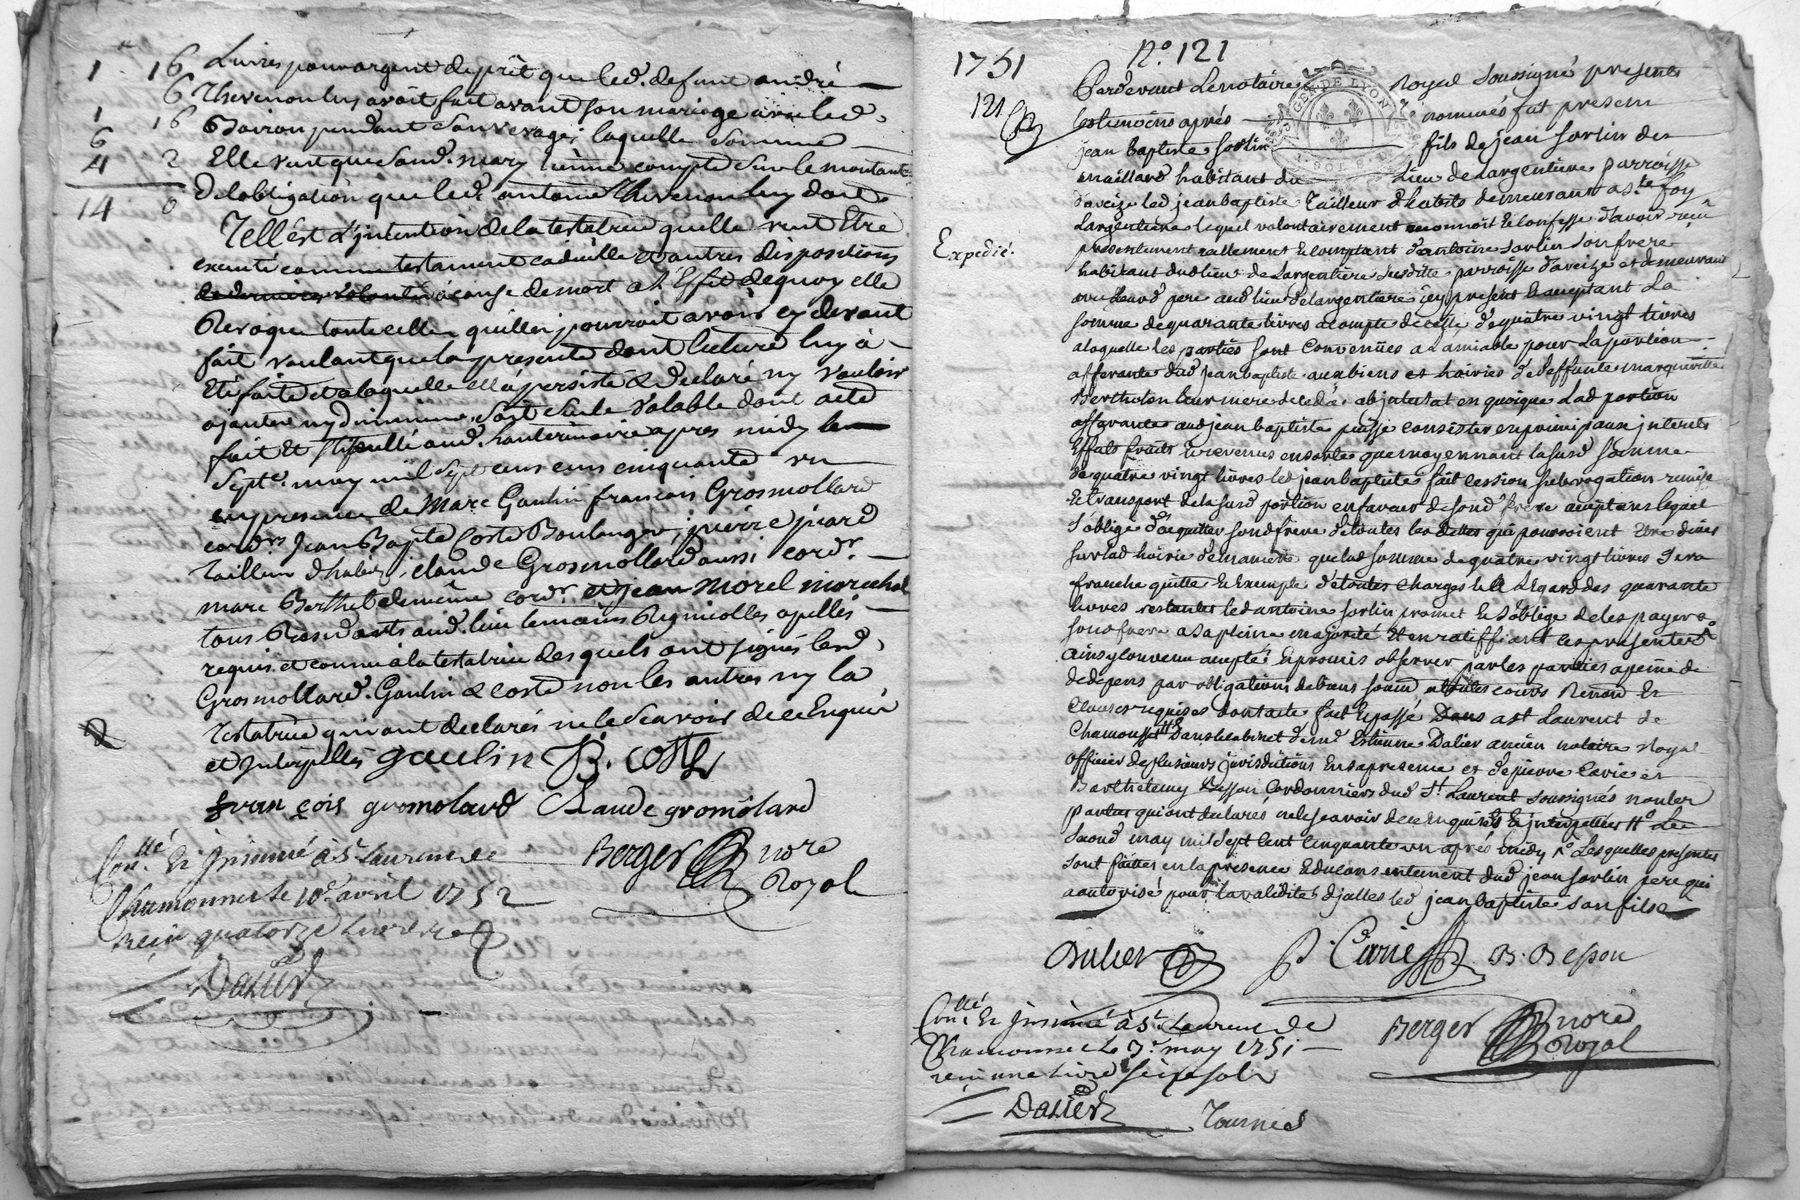 1 16
6
1 16
6
4 2
14 0
Livres pour argent de prêt que led. defunt andré
Thevenon luy avoit fait avant son mariage avec led.
Boiron pendant son vevage; laquelle somme
Elle veut que sond. mary tienne compte sur le montant
de lobligation que led. antoine Thevenon luy doit
Tell est L'intention de la testatrice quelle veut Etre
executé comme testament codicille et autres dispositions
de dernieres volontés a cause de mort a L'Effet dequoy elle
Revoque toutte celles quelle pourroit avoir cy devant
fait voulant que la presente dont lecture luy a
Eté faitte et a laquelle ell'a persisté & declaré ny vouloir
ajouter ny diminuer, soit seule valable dont acte
fait et stipullé aud. hauterivoire apres midy le
sept.e may mil sept cens cinquante un
en presence de Marc Gaulin francois Grosmollard
cord.rs Jean Bapte Coste Boulanger, pierre picard
Tailleur d'habits, claude Grosmollard aussi cord.r
marc Berthet de meme cord.r et jean morel marechal
tous Residants aud. lieu temoins Reynicolles apellés
requis et connu a la testatrice desquels ont signés lesd.
Grosmollard. Gaulin & coste non les autres ny la
Testatrice qui ont declarés ne le scavoir de ce Enquis
et Interpellés gaulin B. coste
fran çois gromolard Claude gromolard
Con.llé Et Insinué a S.t Laurent de
Chamousset le 10.e avril 1752
Reçu quatorze Livres
Berger no.re
Royal
Dalier
1751 N.o 121
121
Expedié.
Pardevant Le notaire Royal soussigné presents
les temoins après nommés fut present
jean baptiste sorlin fils de jean sorlin dit
maillard habitant du Lieu de Largentiere parroisse
d'aveize led jean baptiste Tailleur d'habits demeurant a s.te foy
Largentiere lequel volontairement reconnoit et confesse d'avoir reçu
presentement reellement et comptant d'antoine sorlin son frere
habitant dud lieu de Largentiere susditte parroisse d'aveize et demeurant
avec leurd pere aud lieu de largentiere icy present et acceptant La
somme de quarante livres a compte de celle de quatre vingt livres
a laquelle les parties sont convenües a l'amiable pour La portion
afferante dud jean baptiste aux biens et hoiries de deffunte marguritte
Bertholon leur mere decedée abjntestat en quoique Lad portion
afferante aud jean baptiste puisse consister en principaux jnterets
Effets fruits et revenus en sorte que moyennant la susd somme
de quatre vingt livres led jean baptiste fait cession subrogation remise
et transport de la susd portion en faveur de sond frere acceptant lequel
s'oblige d'acquitter sond frere de toutes les dettes qui pourroient etre dües
sur lad hoirie de maniere que lad somme de quatre vingt livres sera
franche quitte et exempte de toutes charges et a L'Egard des quarante
livres restantes led antoine sorlin promet et s'oblige de les payer a
sond frere a sa pleine majorité et en ratiffiant ces presentes
ainsy convenu accepté et promis observer par les parties a peine de
de depens par obligations de biens soumi. et toutes cours Renon. et
clauses requises dont acte fait et passé Dans a st Laurent de
Chamousset dans le cabinet de m.e Estienne Dalier ancien notaire Royal
officier de plusieurs jurisdictions en sa presence et de pierre Carie et
Barthelemy Besson Cordonniers dud S.t Laurent soussignés non les
parties qui ont declarés ne le scavoir de ce Enquises et interpellées Le
second may mil sept cent cinquante un après midy Lesquelles presentes
sont faittes en la presence et du consentement dud jean sorlin pere qui
a autorisé pour la validité d'jcelles led jean baptiste son fils
Dalier P. Carie B. Besson
Con.llé Et Insinué a S.t Laurent de
Chamousset Le 7.e may 1751
reçu une Livre seize sols
Berger no.re
Royal
Dalier